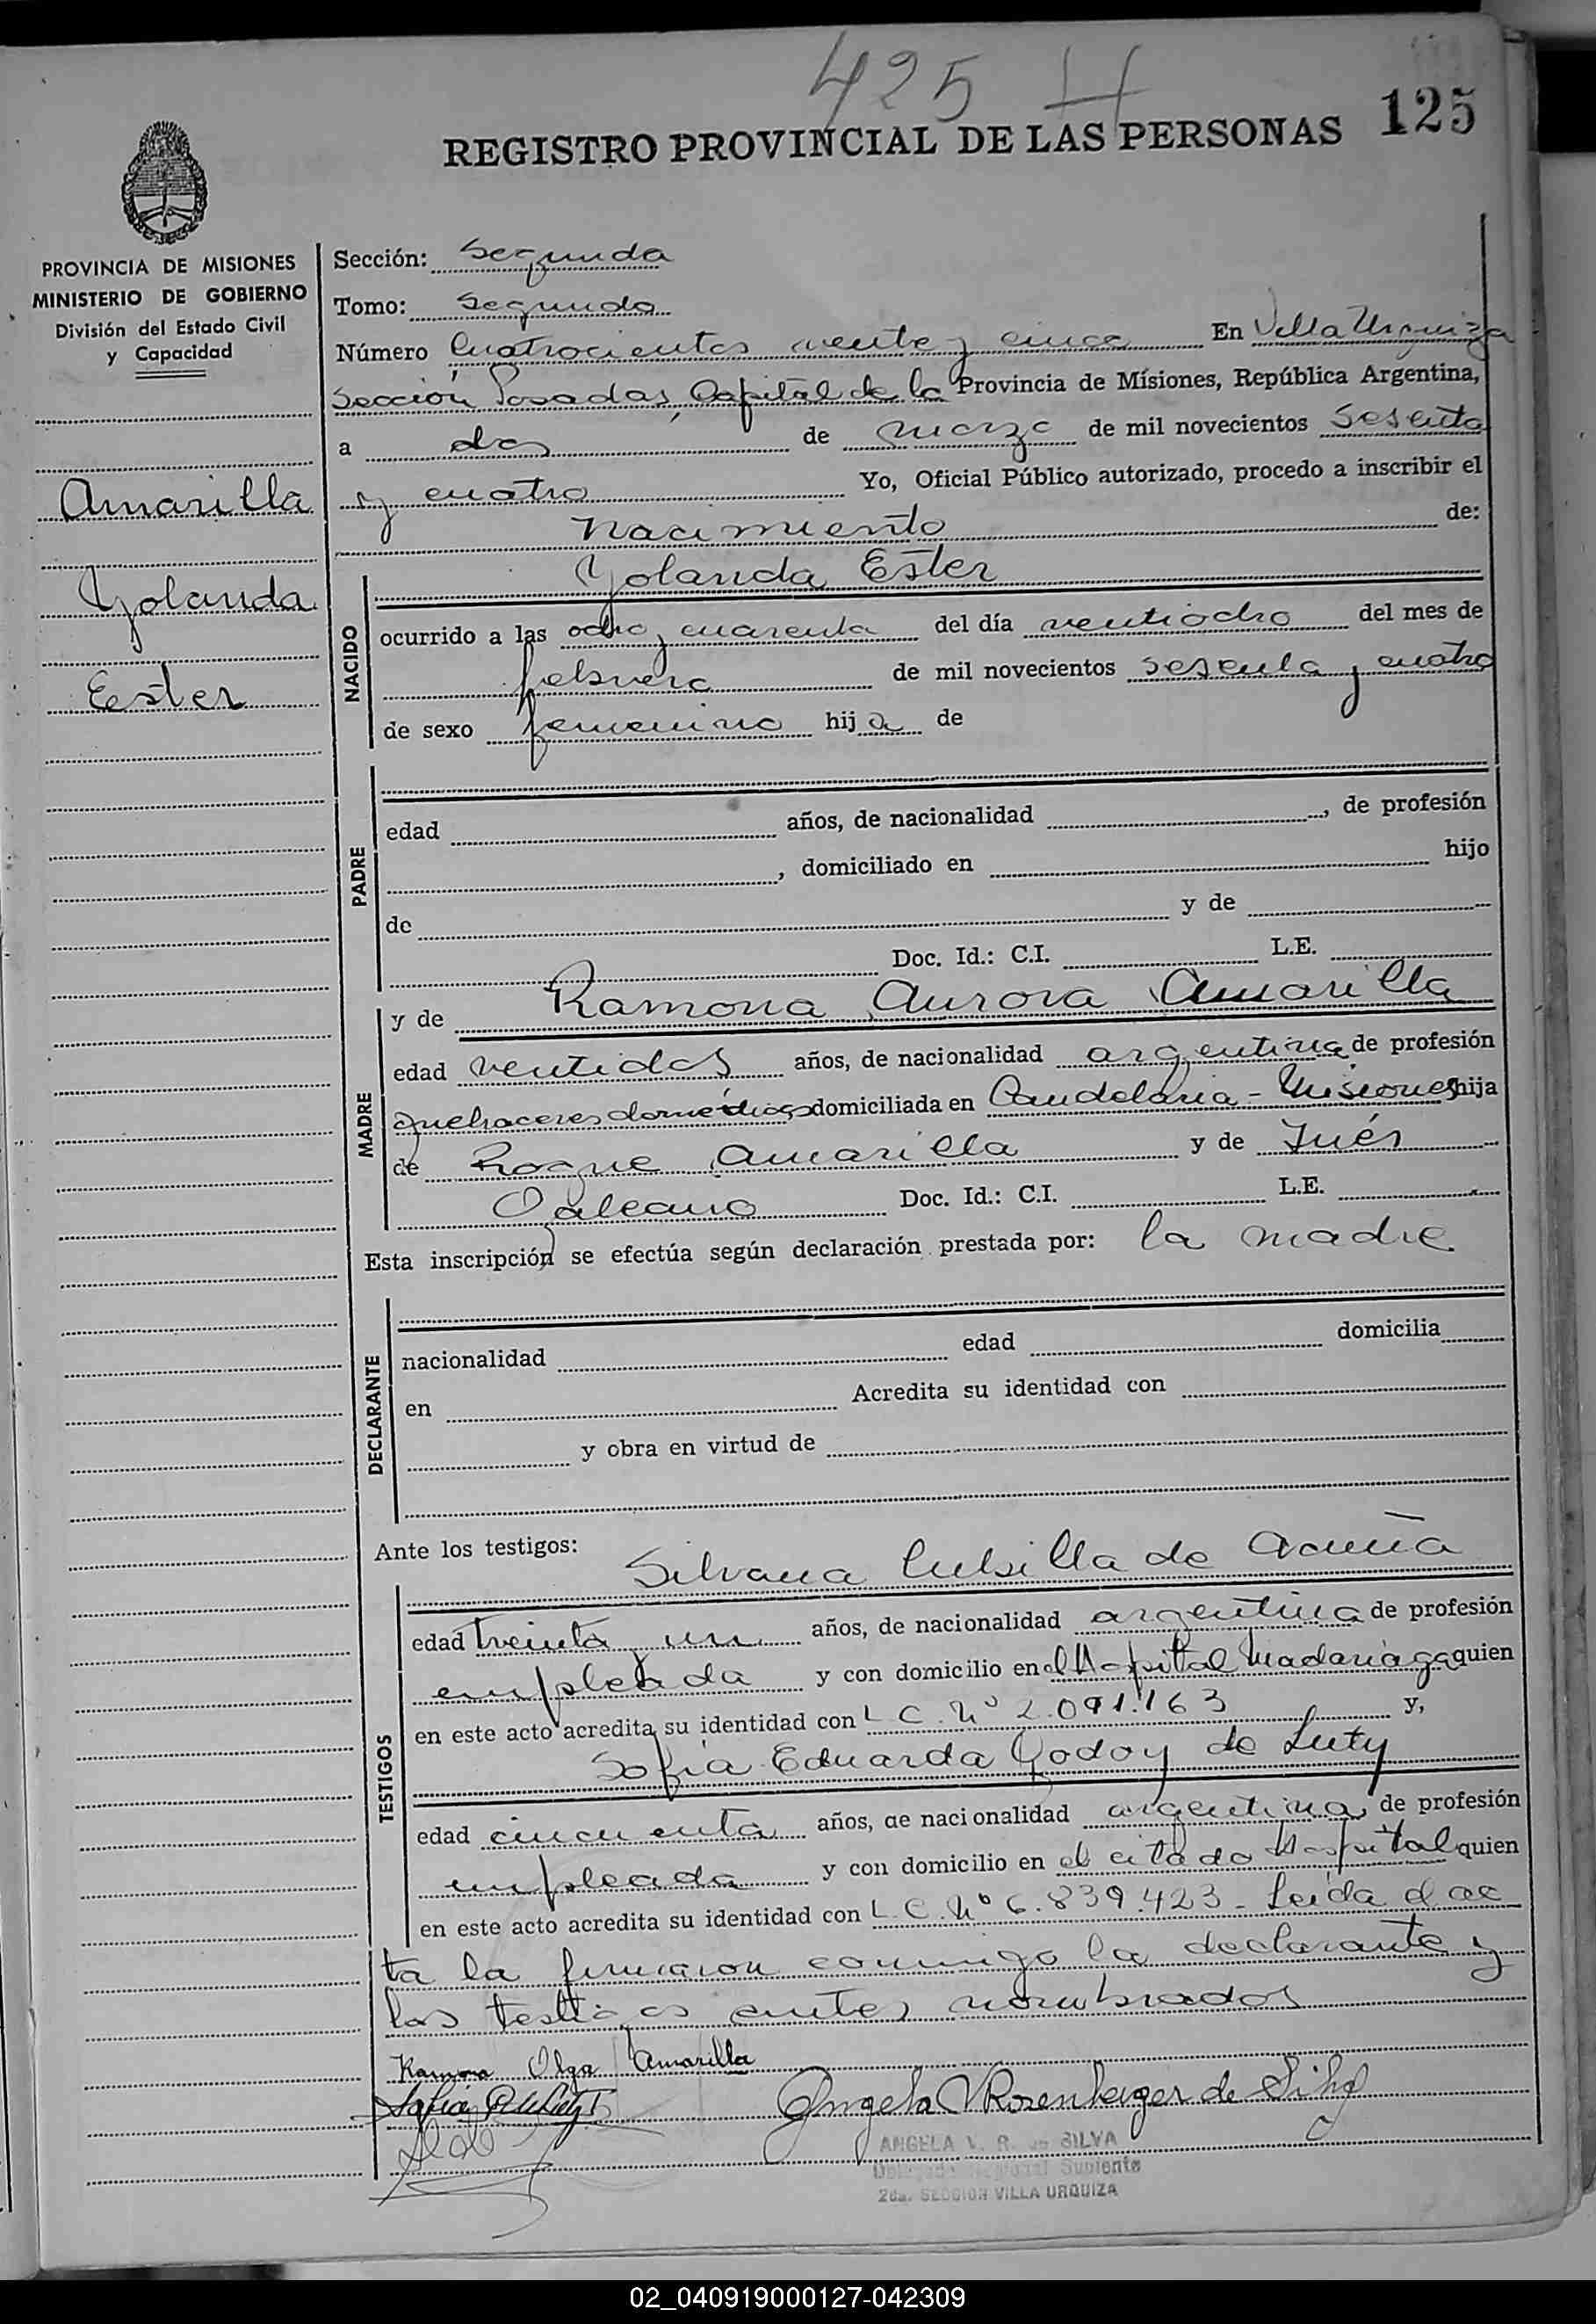 425 H
REGISTRO PROVINCIAL DE LAS PERSONAS 125
PROVINCIA DE MISIONES
MINISTERIO DE GOBIERNO
División del Estado Civil
y Capacidad
Amarilla
Yolanda
Ester
Sección: Segunda
Tomo: Segundo
Número Cuatrocientos veinte y cinco En Villa Urquiza
Sección Posadas, Capital de la Provincia de Misiones, República Argentina,
a dos de marzo de mil novecientos sesenta
y cuatro Yo, Oficial Público autorizado, procedo a inscribir el
nacimiento de:
Yolanda Ester
NACIDO
ocurrido a las ocho y cuarenta del día ventiocho del mes de
febrero de mil novecientos sesenta y cuatro
de sexo femenino hija de
PADRE
edad años, de nacionalidad , de profesión
, domiciliado en hijo
de y de
Doc. Id.: C.I. L.E.
MADRE
y de Ramona Aurora Amarilla
edad ventidos años, de nacionalidad argentina de profesión
quehaceres domésticos domiciliada en Candelaria - Misiones hija
de Roque Amarilla y de Inés
Galeano Doc. Id.: C.I. L.E.
Esta inscripción se efectúa según declaración prestada por: la madre
DECLARANTE
nacionalidad edad domicilia
en Acredita su identidad con
y obra en virtud de
Ante los testigos:
Silvana de Acuña
TESTIGOS
edad treinta y un años, de nacionalidad argentina de profesión
empleada y con domicilio en el Hospital Madariaga quien
en este acto acredita su identidad con L C. Nº 2.091.163 y,
Sofia Eduarda Godoy de Luty
edad cincuenta años, de nacionalidad argentina, de profesión
empleada y con domicilio en el citado Hospital quien
en este acto acredita su identidad con L.C. Nº 6.839.423 - Leída el ac
ta la firmaron conmigo la declarante y
los testigos antes nombrados
Ramona Olga Amarilla
Sofia
Angela V Rosenberger de Silva
ANGELA V. R. de SILVA
Suplente
2da. SECCION VILLA URQUIZA
02_040919000127-042309